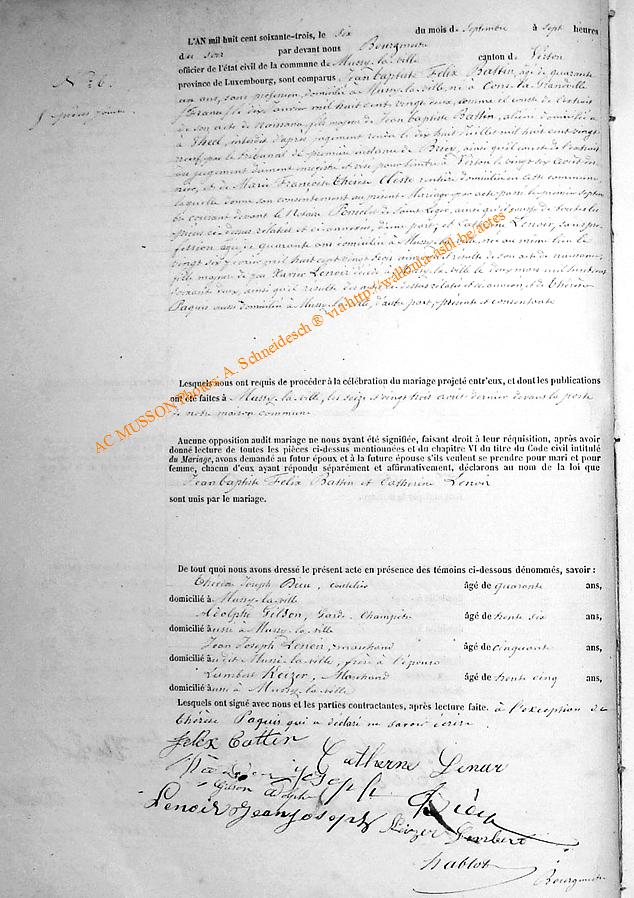 L'AN mil huit cent soixante-trois, le six du mois de Septembre à sept heures
du soir par devant nous Bourgmestre
officier de l'état civil de la commune de Mussy-la-ville canton de Virton
province de Luxembourg, sont comparus Jean baptiste Félix Battin, âgé de quarante
un ans, sans profession domicilié à Mussy-la-ville, né à Cons-la-Grandville
N° 6.
(France) le dix Janvier mil huit cent vingt deux, comme il conste de l'extrait
de son acte de naissance, fils majeur de Jean baptiste Battin, domicilié
à interdit d'après jugement rendu le dix huit Juillet mil huit cent vingt
neuf, par le tribunal de première instance de Briey, ainsi qu'il conste de l'extrait
du jugement dument enregistré et visé pour timbre à Virton le vingt six Août
et de Marie Françoise Thérèse rentière domiciliée en cette commune
laquelle donne son consentement au présent Mariage par acte passé le premier septem
bre courant devant le Notaire de Saint Léger, ainsi qu'il conste de toutes les
pièces ci-dessus relatées et ci-annexées, d'une part, et Catherine Lenoir, sans pro
fession âgée de quarante ans domiciliée à Mussy-la-ville, née au même lieu le
vingt six mil huit cent vingt trois, ainsi qu'il résulte de son acte de naissance,
fille majeure de feu Xavier Lenoir décédé à Mussy-la-ville le deux mars mil huit cent
ainsi qu'il résulte des actes ci-dessus relatés et ci-annexés, et de Thérèse
Paquis aussi domiciliée à Mussy-la-ville, d'autre part, présente et consentante
Lesquels nous ont requis de procéder à la célébration du mariage projeté entr'eux, et dont les publications
ont été faites à Mussy-la-ville, les seize et vingt trois août dernier devant la porte
de notre maison commune
Aucune opposition audit mariage ne nous ayant été signifiée, faisant droit à leur réquisition, après avoir
donné lecture de toutes les pièces ci-dessus mentionnées et du chapitre VI du titre du Code civil intitulé
du Mariage, avons demandé au futur époux et à la future épouse s'ils veulent se prendre pour mari et pour
femme, chacun d'eux ayant répondu séparément et affirmativement, déclarons au nom de la loi que
Jean baptiste Félix Battin et Catherine Lenoir
sont unis par le mariage.
De tout quoi nous avons dressé le présent acte en présence des témoins ci-dessous dénommés, savoir :
Joseph âgé de quarante ans,
domicilié à Mussy-la-ville
Adolphe Gilson, Garde Champêtre âgé de trente six ans,
domicilié à Mussy-la-ville
Jean Joseph Lenoir, marchand âgé de cinquante ans,
domicilié à Mussy-la-ville, frère à l'épouse
Lambert Keizer, Marchand âgé de trente cinq ans,
domicilié à Mussy-la-ville
Lesquels ont signé avec nous et les parties contractantes, après lecture faite. à l'exception de
Thérèse Paquis qui a déclaré ne savoir écrire
felix Battin
Catherine Lenoir
Joseph
Gilson Adolphe
Lenoir Jean joseph Keizer Lambert
Bourgmestre
AC MUSSON Photos: A. Schneidesch ® via http://wallonia-asbl.be/actes